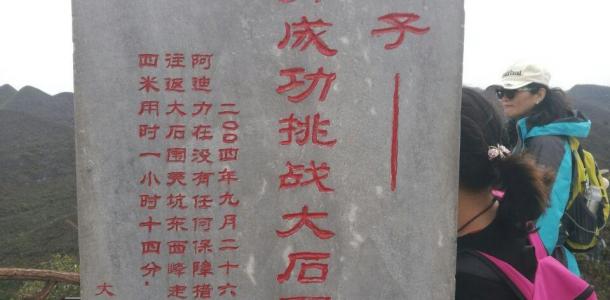 子——
成功挑战大石
二〇〇四年九月二十六
阿迪力在没有任何保障措
往返大石围天坑东西峰走
四米用时一小时十四分。
大